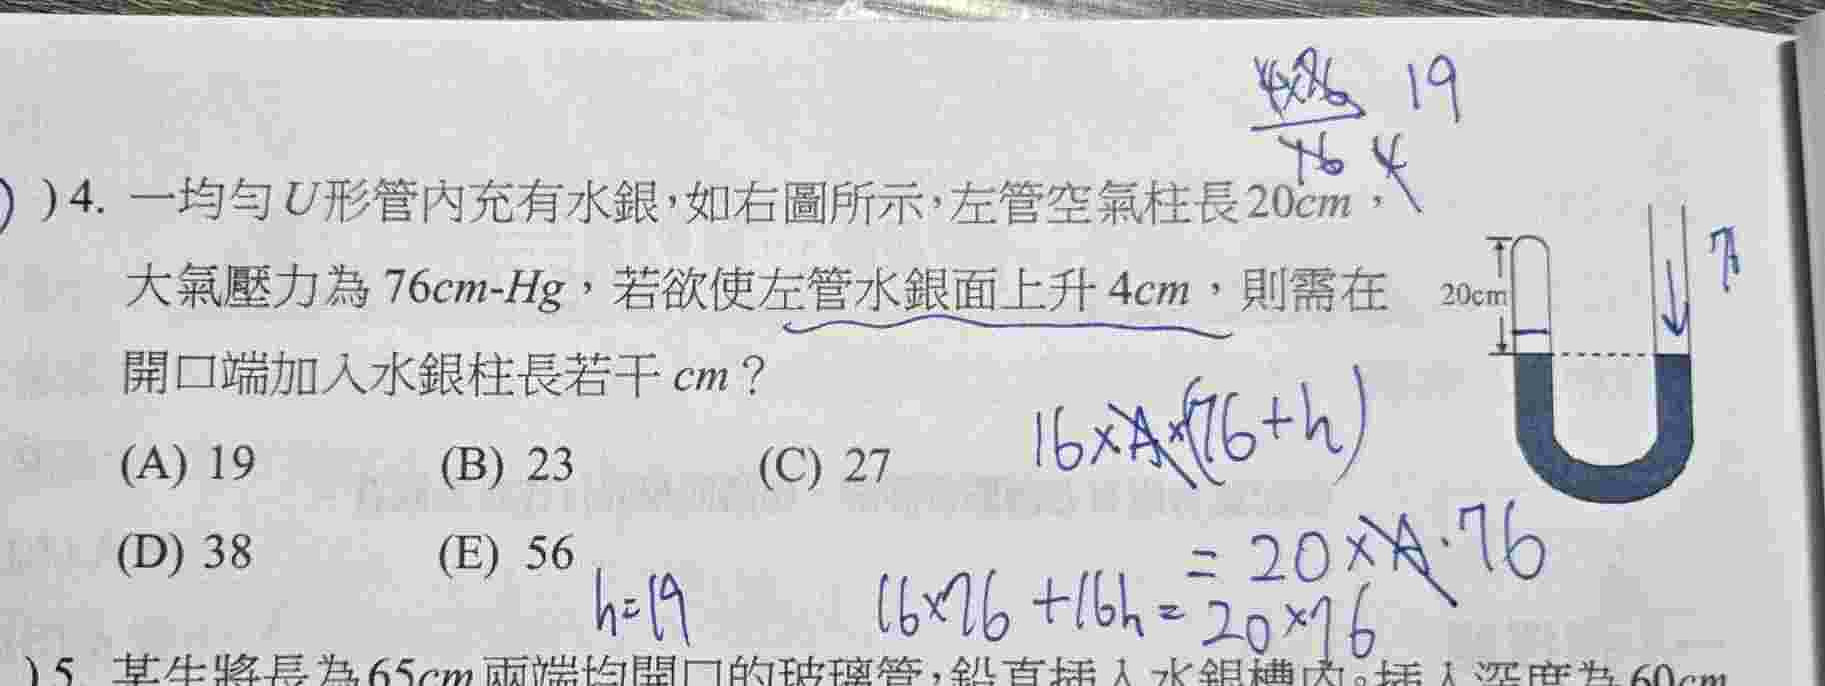 4×76 19
16 4
)4. 一均勻U形管內充有水銀,如右圖所示,左管空氣柱長20cm,
大氣壓力為 76cm-Hg,若欲使左管水銀面上升 4cm,則需在
20cm
開口端加入水銀柱長若干 cm?
16×A×(76+h)
(A) 19 (B) 23 (C) 27
= 20×A·76
(D) 38 (E) 56
h=19 16×76+16h=20×76
)5. 某生將長為65cm兩端均開口的玻璃管,鉛直插入水銀槽內。插入深度為60cm